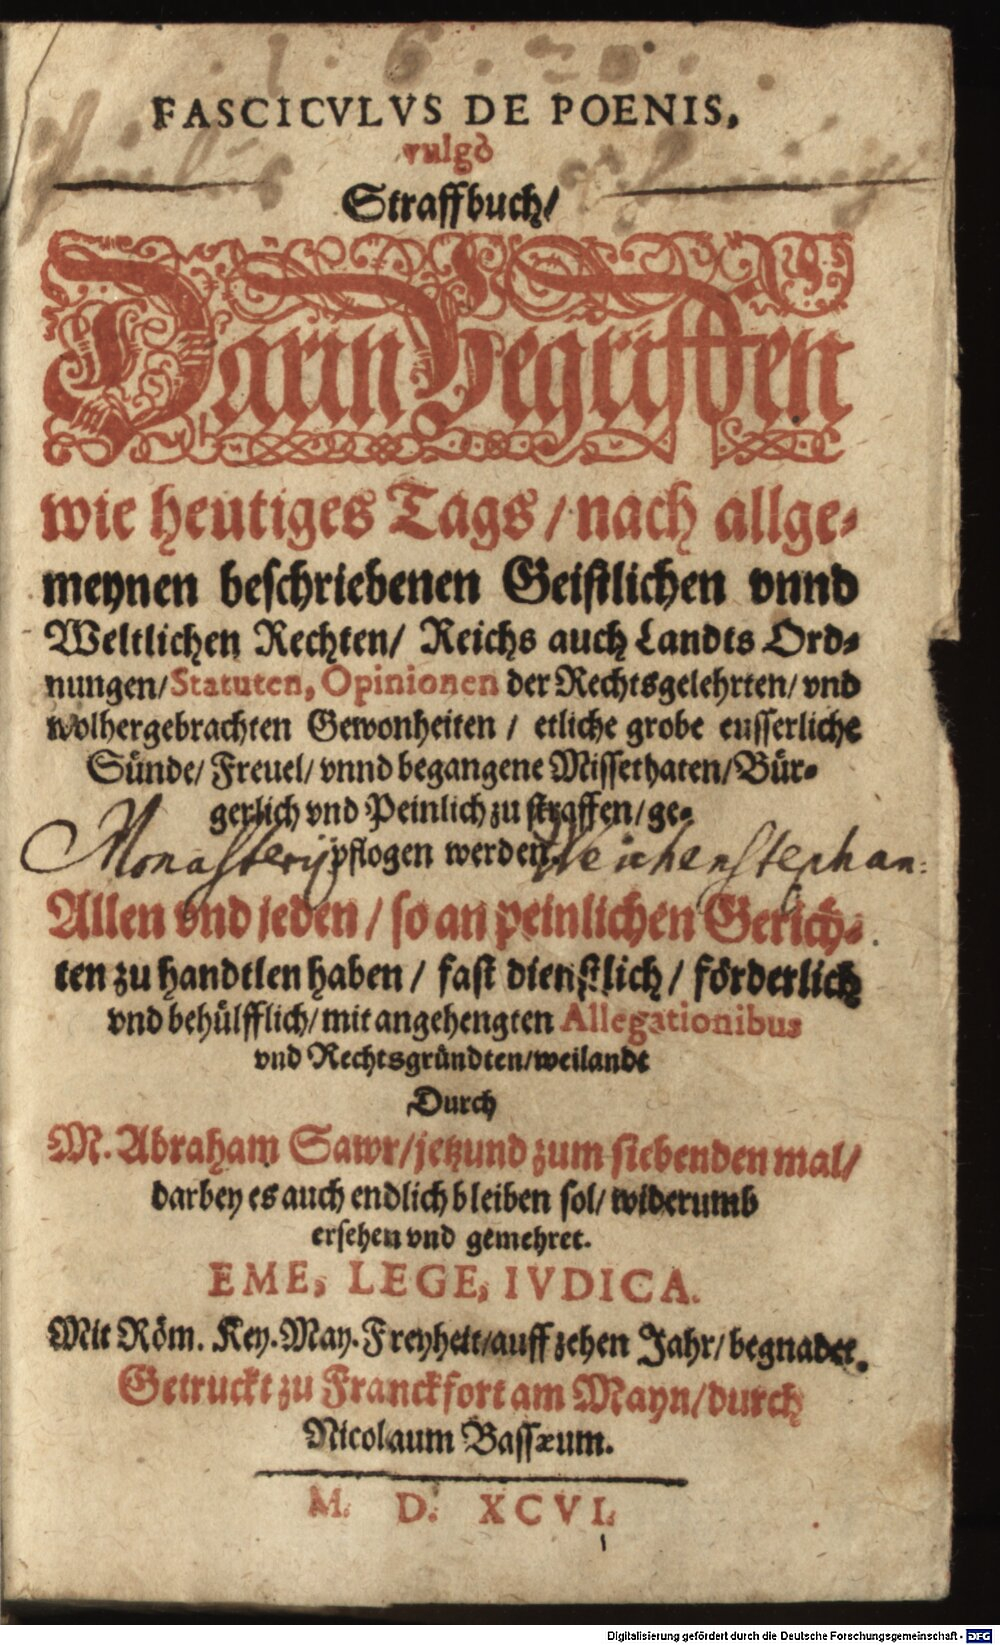 FASCICVLVS DE POENIS,
vulgò
Straffbuch/
Darin begriffen
wie heutiges Tags / nach allge-
meynen beschriebenen Geistlichen vnnd
Weltlichen Rechten/ Reichs auch Landts Ord-
nungen/ Statuten, Opinionen der Rechtsgelehrten/ vnd
wolhergebrachten Gewonheiten / etliche grobe eusserliche
Sünde/ Freuel/ vnnd begangene Missethaten/ Bür-
gerlich vnd Peinlich zu straffen/ ge-
pflogen werden.
Monasterij Weichenstephan:
Allen vnd jeden / so an peinlichen Gerich-
ten zu handtlen haben / fast dienstlich / förderlich
vnd behülfflich/ mit angehengten Allegationibus
vnd Rechtsgründten/ weilandt
Durch
M. Abraham Sawr/ jetzund zum siebenden mal/
darbey es auch endlich bleiben sol/ widerumb
ersehen vnd gemehret.
EME, LEGE, IVDICA.
Mit Röm. Key. May. Freyheit/ auff zehen Jahr/ begnadet.
Getruckt zu Franckfort am Mayn/ durch
Nicolaum Bassæum.
M. D. XCVI.
Digitalisierung gefördert durch die Deutsche Forschungsgemeinschaft - DFG